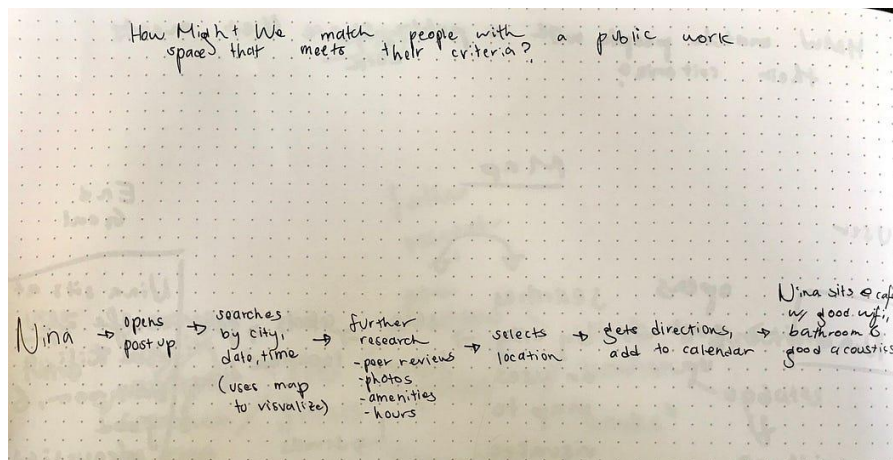 How Might We match people with a public work
space that meets their criteria?
Nina → opens
post up → searches
by city,
date, time
(uses map
to visualize) → further
research
- peer reviews
- photos
- amenities
- hours → selects
location → gets directions,
add to calendar → Nina sits @ cafe
w/ good wifi,
bathroom &
good acoustics